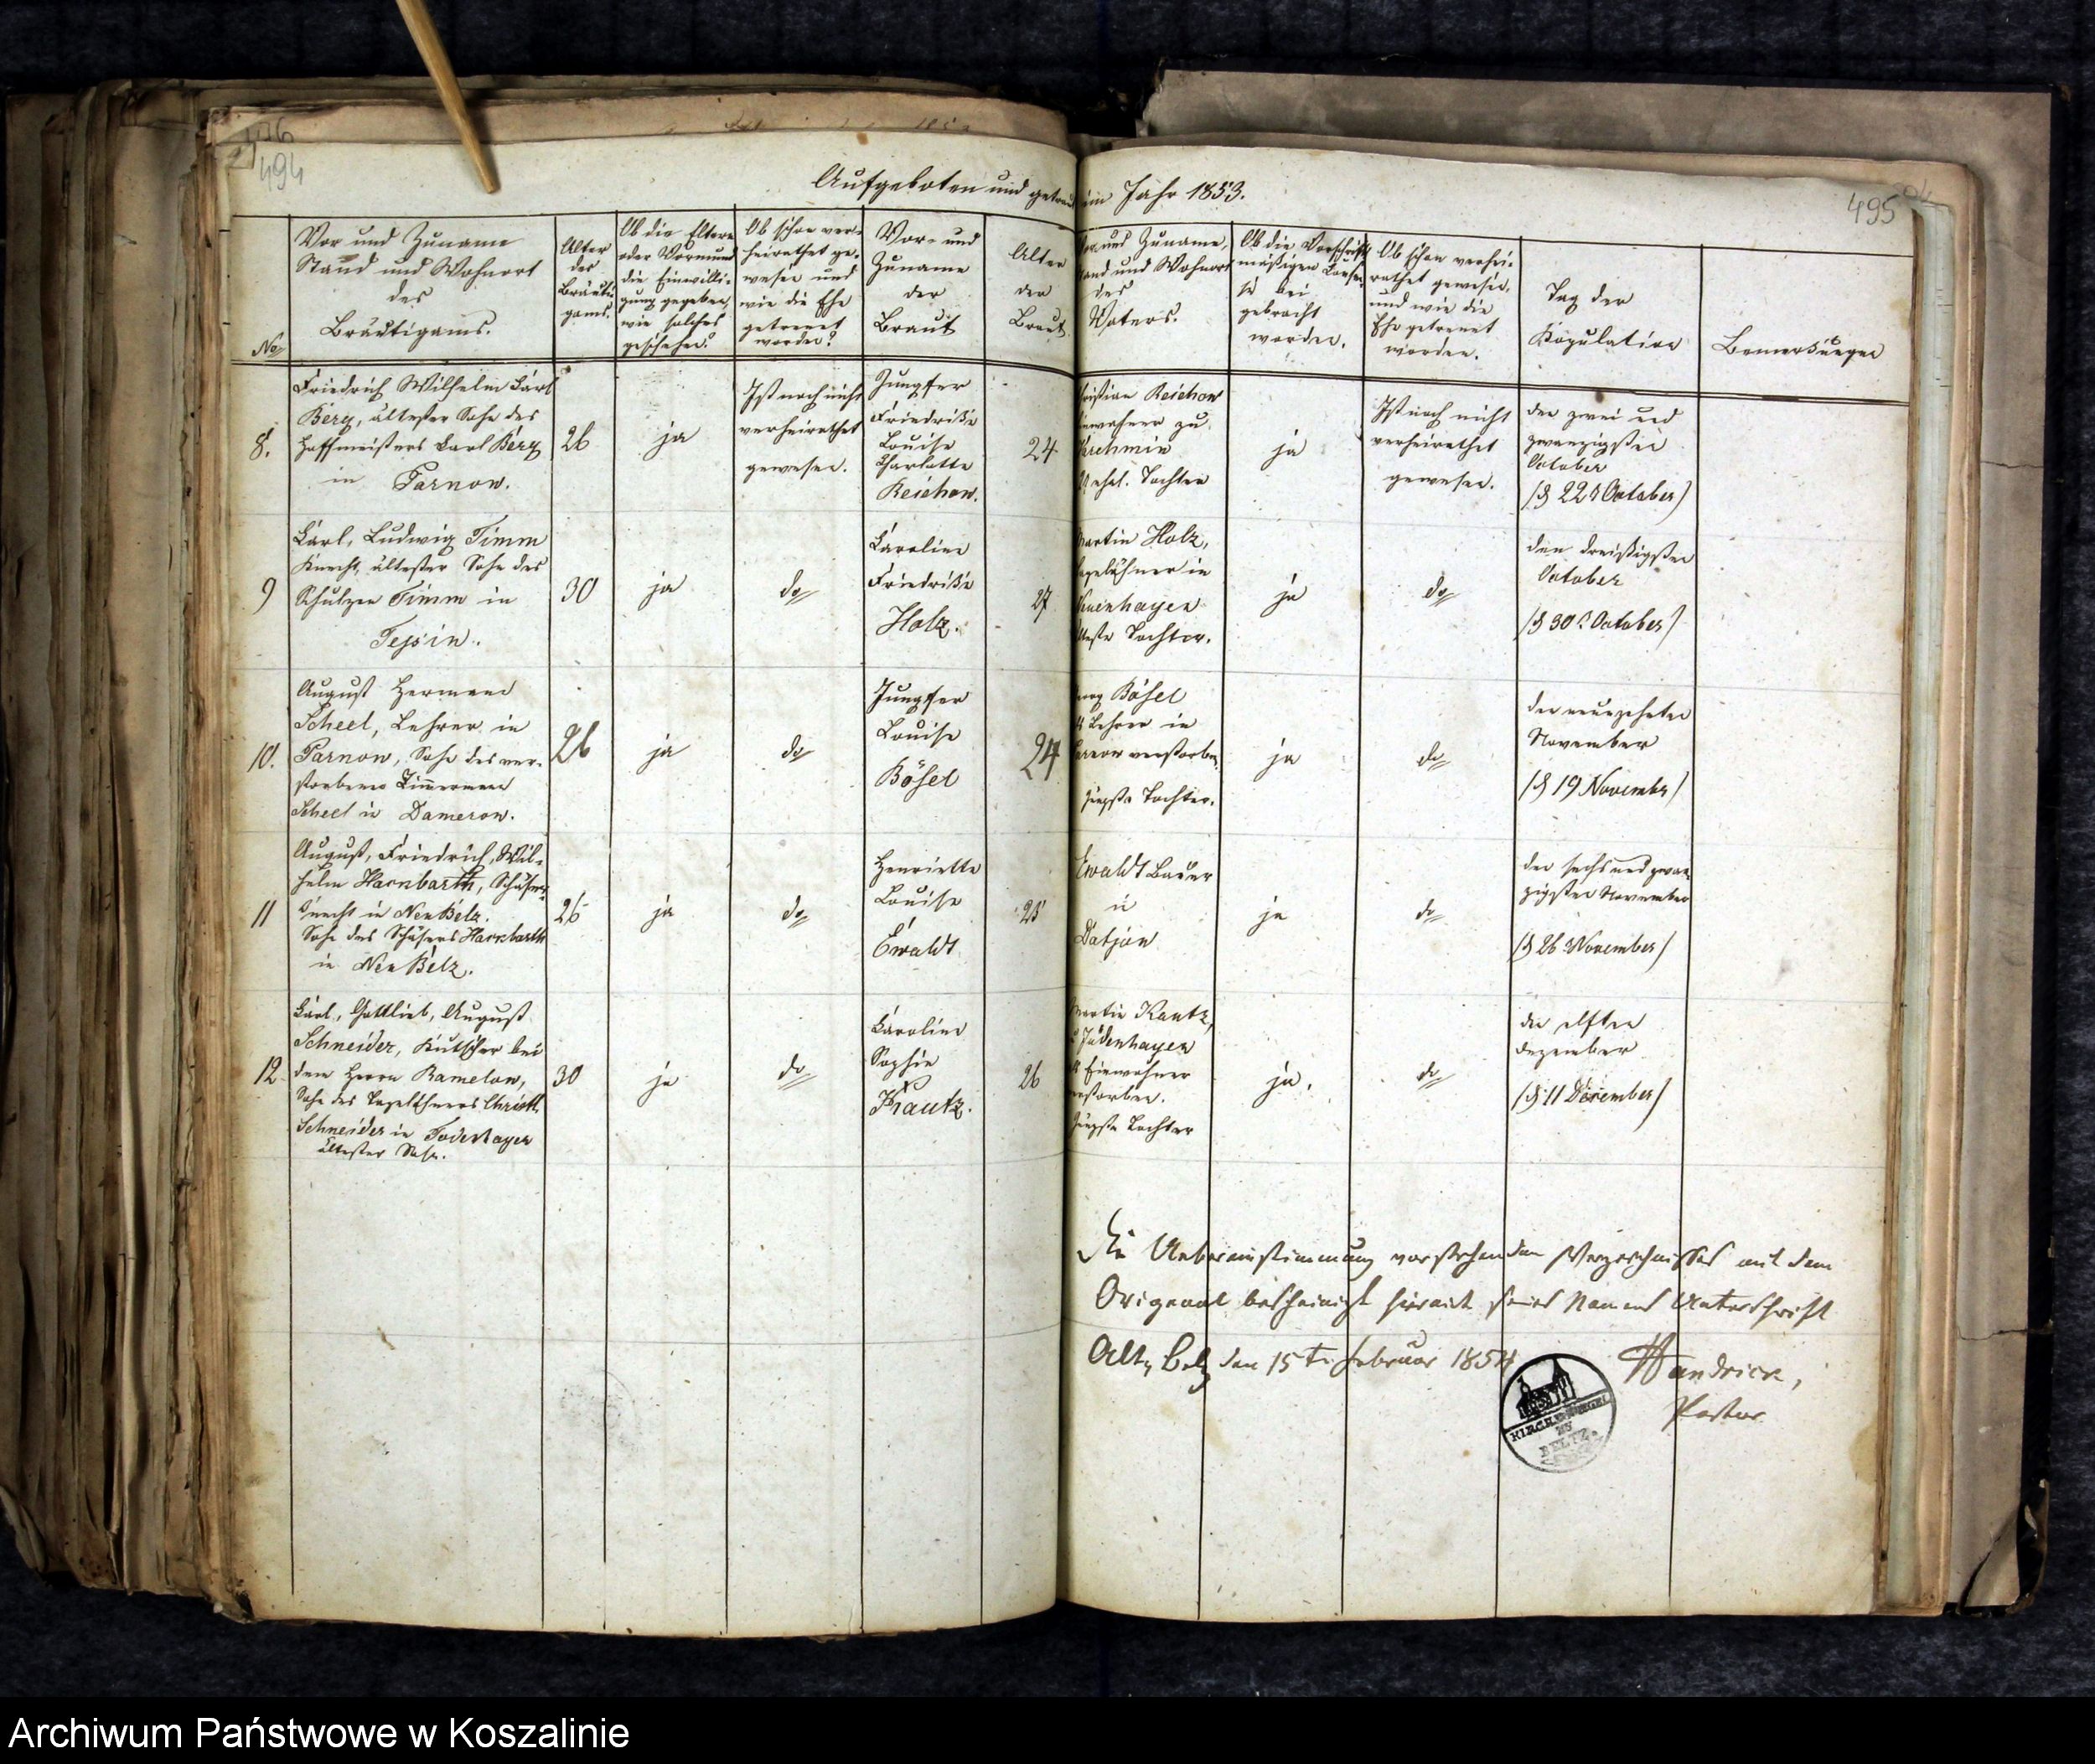 494
495
Aufgeboten und getraut im Jahr 1853.
No
Vor und Zuname
Stand und Wohnort
des
Bräutigams.
Alter
des
Bräuti-
gams.
Ob die Eltern
oder Vormund
die Einwilli-
gung gegeben,
wie solches
geschehen?
Ob schon ver-
heirathet ge-
wesen und
wie die Ehe
getrennt
worden?
Vor- und
Zuname
der
Braut
Alter
der
Braut.
und Zuname,
und Wohnort
des
Vaters.
Ob die Vorschrift-
mäßigen Consen-
se bei
gebracht
worden.
Ob schon verhei-
rathet gewesen,
und wie die
Ehe getrennt
worden.
Tag der
Kopulation
Bemerkungen
8.
Friedrich Wilhelm Carl
Berg, ältester Sohn des
Hoffmeisters Carl Berg
in Parnow.
26
ja
Ist noch nicht
verheirathet
gewesen.
Jungfer
Friedrike
Louise
Charlotte
Reichow.
24
Reichow
zu
ehel. Tochter
ja
Ist noch nicht
verheirathet
gewesen.
den zwei und
zwanzigsten
October
(d 22t October)
9
Carl, Ludwig Timm
Knecht, ältester Sohn des
Schulzen Timm in
Tessin.
30
ja
do
Caroline
Friedrike
Holz.
27
Martin Holz,
in
älteste Tochter.
ja
do
den dreißigsten
October
(d 30t October)
10.
August Hermann
Scheel, Lehrer in
Parnow, Sohn des ver-
storbenen Zimmermann
Scheel in Dameron.
26
ja
do
Jungfer
Louise
Bösel
24
Bösel
Lehrer in
Parnow verstorben,
jüngste Tochter.
ja
do
den neunzehnten
November
(d 19 November)
11
August, Friedrich, Wil-
helm Hackbarth, Schäfer-
knecht in Neu Belz.
Sohn des Schäfers Hackbarth
in Neu Belz.
26
ja
do
Henriette
Louise
Ewaldt
25
Ewaldt Bauer
in
Datjow
ja
do
den sechs und zwan-
zigsten November
(d 26 November)
12
Carl, Gottlieb, August
Schneider, Kutscher bei
dem Herrn Ramelow,
Sohn des Tagelöhners Christ.
Schneider in Todenhagen
ältester Sohn.
30
ja
do
Caroline
Sophie
Krautz.
26
Martin Krautz,
Einwohner
verstorben.
jüngste Tochter
ja.
do
den elften
Dezember
(d 11 December)
Die Uebereinstimmung vorstehenden Verzeichnisses mit dem
Original bescheinigt hiermit seines Namens Unterschrift
Alt, Belz den 15te Februar 1854
Pastor
KIRCHENSIEGEL
ZU
BELTZ